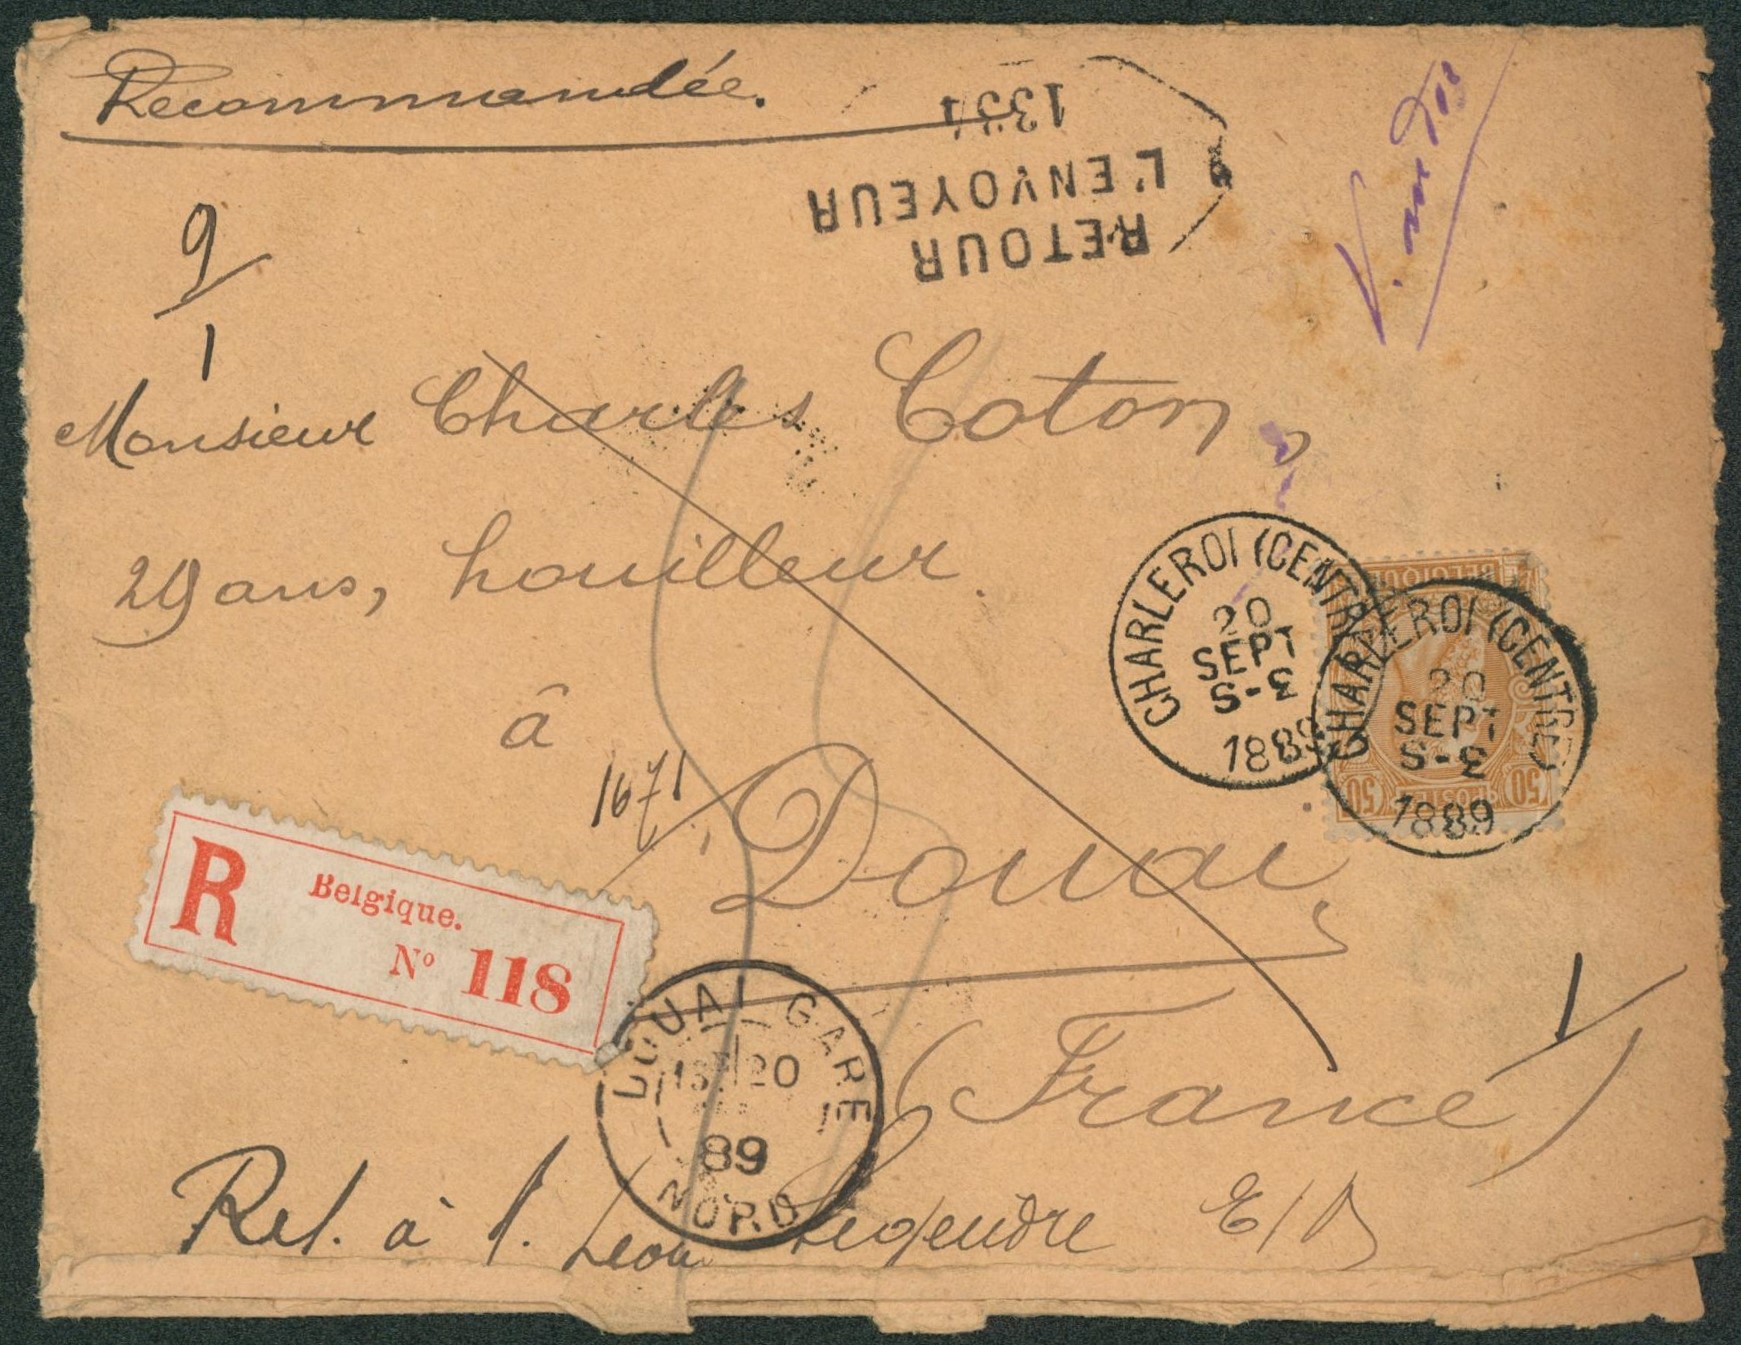 Recommandée.
RETOUR
L'ENVOYEUR
1334
9/1
Monsieur Charles Coton,
29 ans, houilleur.
à
1671
Douai,
(France)
CHARLEROI (CENTRE)
20
SEPT
3-S
1889
CHARLEROI (CENTRE)
20
SEPT
3-S
1889
BELGIQUE
POSTES
50 50
R Belgique.
Nº 118
DOUAI GARE
20
89
NORD
Ret. à l. Leon Legendre E/D